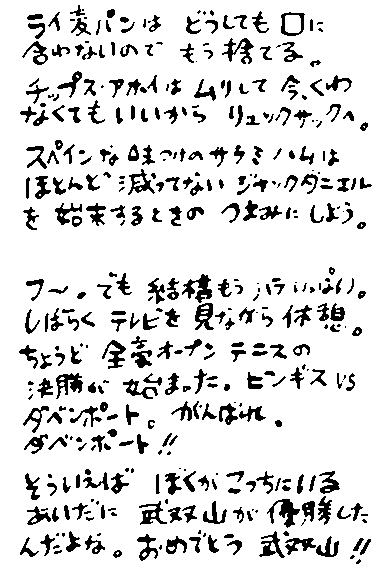 ライ麦パンは どうしても 口に
合わないので もう捨てる。
チップス・アホイは ムリして 今、くわ
なくてもいいから リュックサックへ。
スペインな味つけのサラミハムは
ほとんど 減ってない ジャックダニエル
を 始末するときの つまみに しよう。
フ〜。でも 結構もう ハラいっぱい。
しばらく テレビを 見ながら 休憩。
ちょうど 全豪オープン テニスの
決勝が 始まった。ヒンギス VS
ダベンポート。がんばれ。
ダベンポート!!
そういえば ぼくが こっちにいる
あいだに 武双山が 優勝した
んだよな。おめでとう 武双山!!